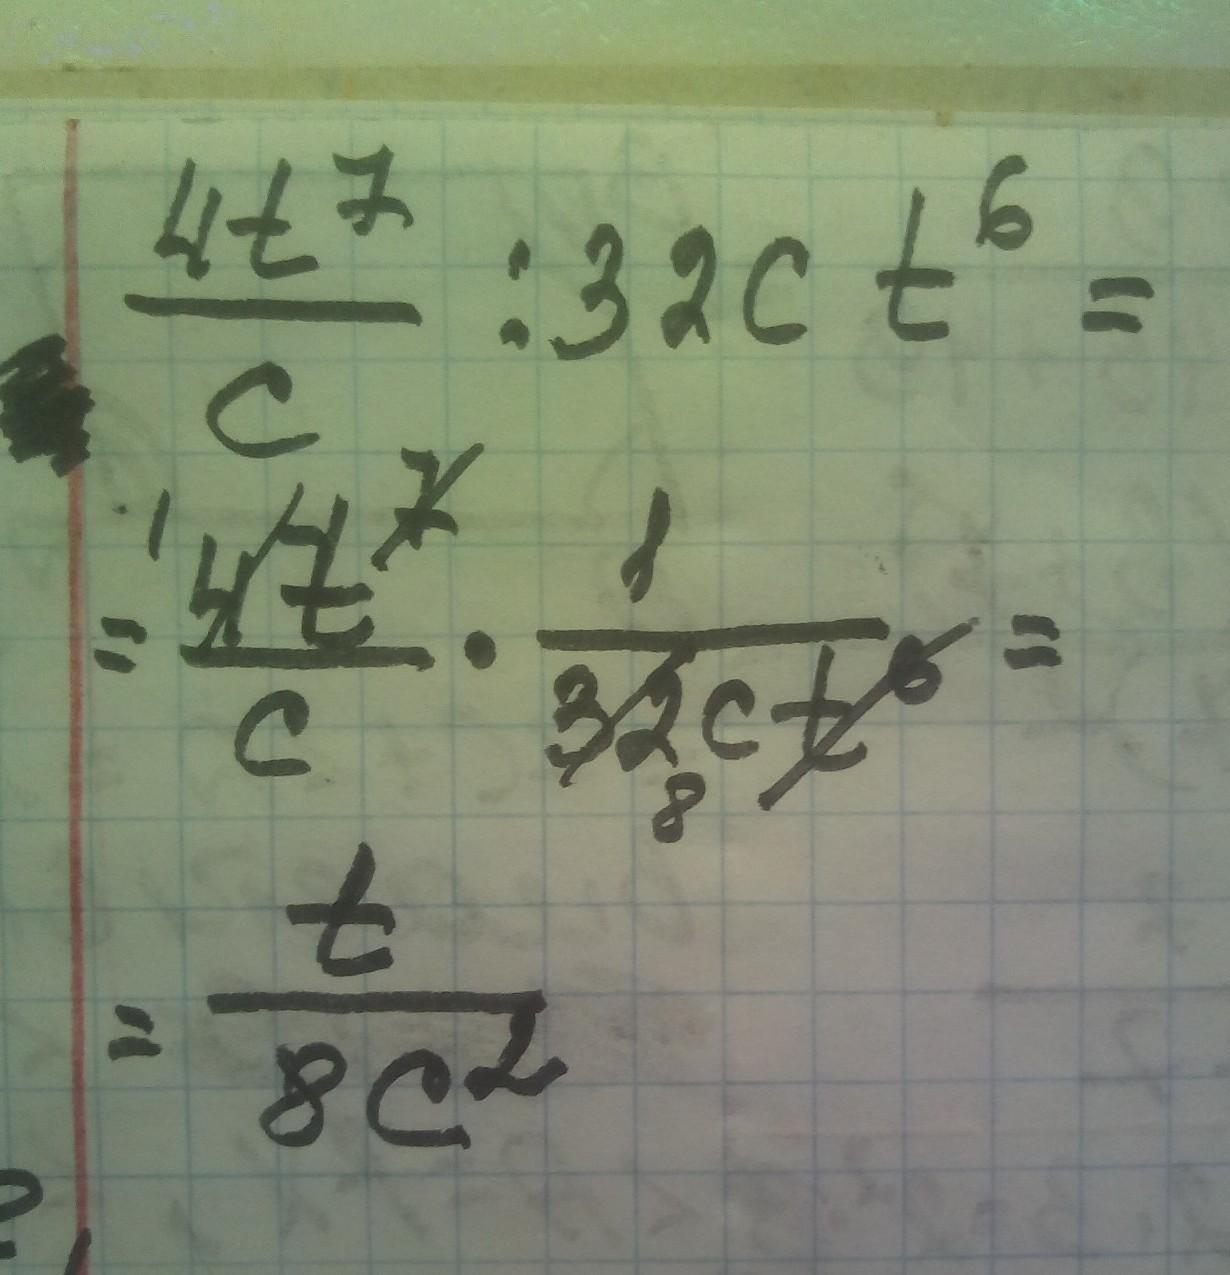 4t⁷/c : 32c t⁶ =
= 4t⁷/c · 1/32ct⁶ =
= t/8c²